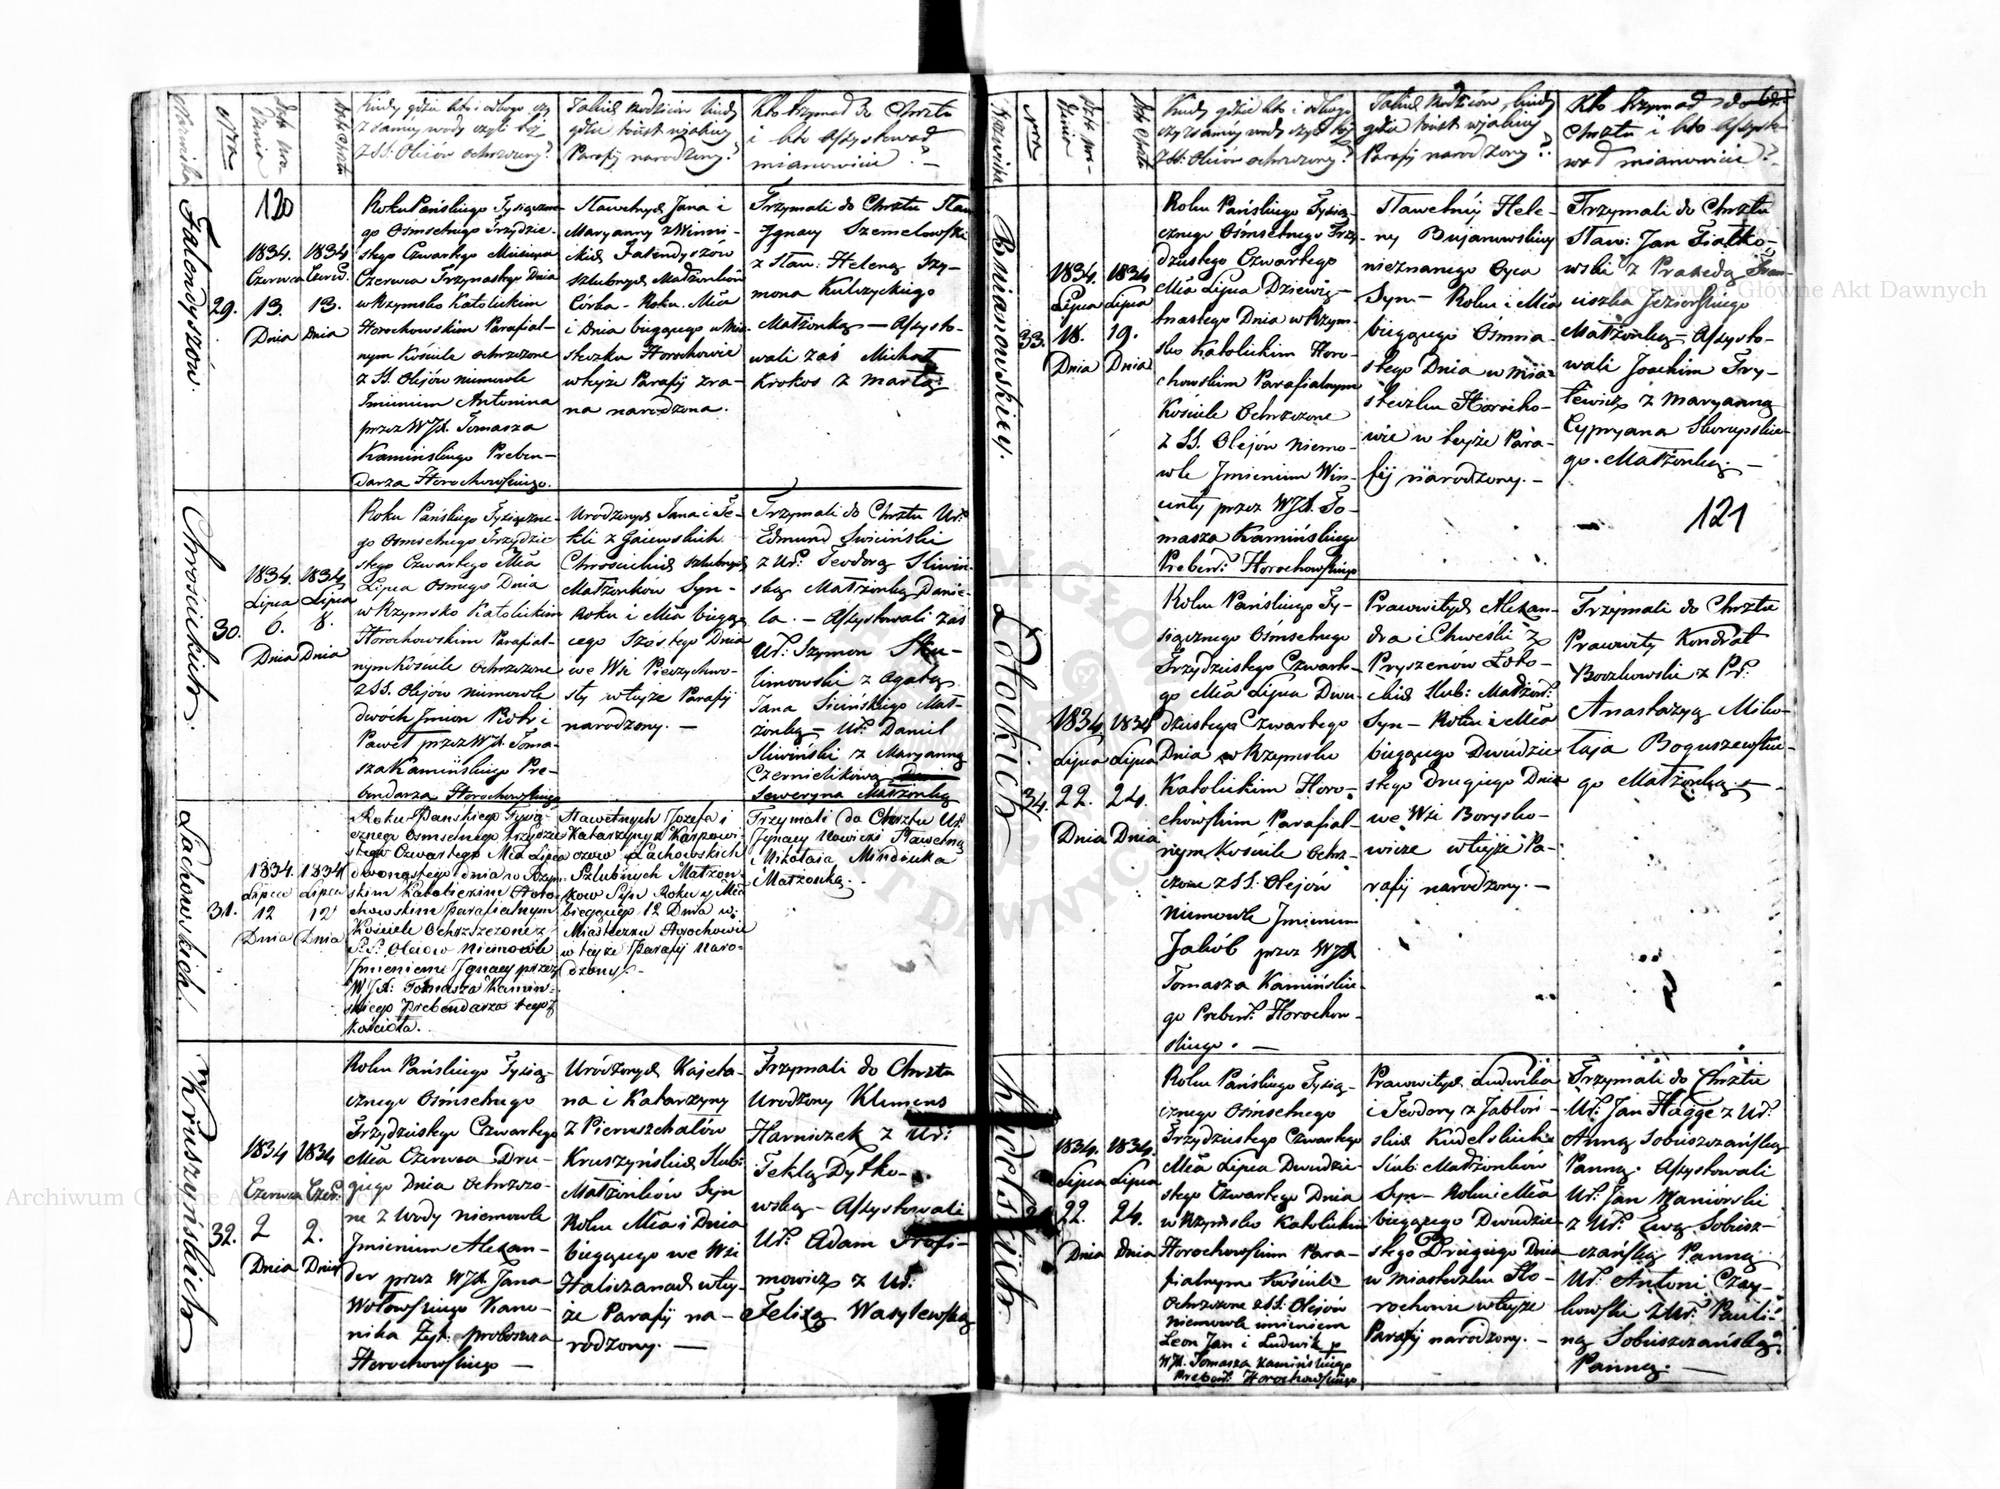 Nazwiska
Nro
Data uro-
dzenia
Data Chrztu
Kiedy gdzie kto i kogo czy
z samey wody czyli też
z SS: Olejów ochrzczony?
Jakich Rodziców kiedy
gdzie tudzież w jakiey
Parafij narodzony?
Kto trzymał do Chrztu
i kto Assystował
mianowicie? -
Falendyszów.
29.
120
1834.
Czerwca
13.
Dnia
1834
Czerw.
13.
Dnia
Roku Pańskiego Tysiączne-
go Osmsetnego Trzydzie-
stego Czwartego Miesiąca
Czerwca Trzynastego Dnia
w Rzymsko Katolickim
Horochowskim Parafial-
nym Kościele ochrzczone
z SS. Olejów niemowle
Imieniem Antonina
przez WJX. Tomasza
Kaminskiego Preben-
darza Horochowskiego.
Sławetnych Jana i
Maryanny z Winni-
ckich Falendyszów
szlubnych Małżonków
Córka - Roku. Mca
i Dnia biegącego w Mia-
steczku Horochowie
w teyże Parafij zra-
na narodzona.
Trzymali do Chrztu Sław
Ignacy Szemelowski
z Sław: Heleną Szy-
mona Kulczyckiego
Małżonką — Assysto-
wali zaś Michał
Krokos z Martą.
Chrościckich.
30.
1834.
Lipca
6.
Dnia
1834
Lipca
8.
Dnia
Roku Pańskiego Tysiączne-
go Osmsetnego Trzydzie-
stego Czwartego Mca
Lipca Osmego Dnia
w Rzymsko Katolickim
Horochowskim Parafial-
nym Kościele Ochrzczone
z SS. Olejów niemowle
dwóch Imion Piotr i
Paweł przez WJX. Toma-
sza Kamińskiego Pre-
bendarza Horochowskiego
Urodzonych Jana i Te-
kli z Gaiewskich
Chrościckich szlubnych
Małżonków Syn -
Roku i Mca biegą-
cego Szóstego Dnia
we Wsi Pieczychwo-
sty w teyże Parafij
narodzony. —
Trzymali do Chrztu Ur:
Edmund Swiciński
z Ur: Teodorą Sliwiń-
ską Małżonką Danie-
la. - Assystowali zaś
Ur: Szymon Sku-
limowski z Agatą
Jana Sicińskiego Mał-
żonką - Ur: Daniel
Sliwiński z Maryanną
Czernielikową
Seweryna Małżonką
Lachowskich.
31.
1834.
Lipca
12
Dnia
1834
Lipca
12
Dnia
Roku Pańskiego Tysią-
cznego Osmsetnego Trzydzie-
stego Czwartego Mca Lipca
dwonastego dnia w Rzym-
skim Katolickim Horo-
chowskim Parafialnym
Kościele Ochrzszczone z
S.S. Olejow Niemowle
Imieniem Ignacy przez
WJX: Tomasza Kamin-
skiego Prebendarza tegoż
Kościoła.
Sławetnych Jozefa i
Katarzyny z Karpowi-
czow Lachowskich
Szlubnych Małzon-
kow Syn Roku y Mca
biegącego 12 Dnia w
Miasteczku Horochowie
w teyże Parafij naro-
dzony. -
Trzymali do Chrztu Ur:
Ignacy Nowicki Sławetną
Mikołaia Mindiuka
Małzonką. -
Kruszyńskich
32.
1834
Czerwca
2
Dnia
1834
Czer:
2.
Dnia
Roku Pańskiego Tysią-
cznego Ośmsetnego
Trzydziestego Czwartego
Mca Czerwca Dru-
giego Dnia Ochrzczo-
ne z Wody niemowle
Imieniem Alexan-
der przez WJX. Jana
Wołowskiego Kano-
nika Żyt: proboszcza
Horochowskiego —
Uródzonych Kajeta-
na i Katarzyny
z Pieruszchałów
Kruszyńskich Slub:
Małżonków Syn
Roku Mca i Dnia
biegącego we Wsi
Haliczanach w tey-
że Parafij na-
rodzony. —
Trzymali do Chrztu
Urodzony Klemens
Harniczek z Ur:
Teklą Dytko-
wską - Assystowali
Ur: Adam Trofi-
mowicz z Ur:
Felixą Wasylewską
Nazwiska
Nro
Data uro-
dzenia
Data Chrztu
Kiedy gdzie kto i kogo
czy z samey wody czyli też
z SS: Olejów ochrzczony?
Jakich Rodziców, kiedy
gdzie tudzież w jakiey
Parafij narodzony?
Kto trzymał do
Chrztu i kto Assysto-
wał mianowicie? -
Bujanowskiey.
33.
1834.
Lipca
18.
Dnia
1834
Lipca
19.
Dnia
Roku Pańskiego Tysią-
cznego Ośmsetnego Trzy-
dziestego Czwartego
Mca Lipca Dziewię-
tnastego Dnia w Rzym-
sko Katolickim Horo-
chowskim Parafialnym
Kościele Ochrzczone
z SS. Olejów Niemo-
wle Imieniem Win-
centy przez WJX. To-
masza Kamińskiego
Preben: Horochowskiego
Sławetnéy Hele-
ny Bujanowskiey
nieznanego Oyca
Syn - Roku i Mca
biegącego Osmna-
stego Dnia w Mia-
steczku Horocho-
wie w teyże Para-
fij narodzony. -
Trzymali do Chrztu
Sław: Jan Fiałko-
wski z Praxedą Fran-
ciszka Jeziorskiego
Małżonką - Assysto-
wali Joachim Try-
lewicz z Maryanną
Cypryana Skorupskie-
go. Małżonką. -
121
Łotockich
34.
1834.
Lipca
22.
Dnia
1834
Lipca
24.
Dnia
Roku Pańskiego Ty-
siącznego Ośmsetnego
Trzydziestego Czwarte-
go Mca Lipca Dwu-
dziestego Czwartego
Dnia w Rzymsko
Katolickim Horo-
chowskim Parafial-
nym Kościele Ochrz-
czone z SS. Olejów
Niemowle Imieniem
Jakób przez WJX
Tomasza Kamińskie-
go Preben: Horochow-
skiego. —
Prawowitych Alexan-
dra i Chweski z
Pryszenów Łoto-
ckich Slub: Małżon:
Syn - Roku i Mca
biegącego Dwudzie-
stego Drugiego Dnia
we Wsi Borysko-
wicze w teyże Pa-
rafij narodzony. —
Trzymali do Chrztu
Prawowity Kondrat
Boczkowski z Pr:
Anastazyą Miko-
łaja Boguszewskie-
go Małżonką -
Kudelskich
1834.
Lipca
22.
Dnia
1834.
Lipca
24.
Dnia
Roku Pańskiego Tysią-
cznego Ośmsetnego
Trzydziestego Czwartego
Mca Lipca Dwudzie-
stego Czwartego Dnia
w Rzymsko Katolickim
Horochowskim Para-
fialnym Kościele
Ochrzczone z SS. Olejów
Niemowle imieniem
Leon Jan i Ludwik p
WJX. Tomasza Kamińskiego
Preben: Horochowskiego
Prawowitych Ludwika
i Teodory z Jabłoń-
skich Kudelskich
Slub: Małżonków
Syn - Roku i Mca
biegącego Dwudzie-
stego Drugiego Dnia
w Miasteczku Ho-
rochowie w teyże
Parafij narodzony. -
Trzymali do Chrztu
Ur: Jan Hagge z Ur:
Anną Sobieszczańską
Panną. Assystowali
Ur: Jan Maniórski
z Ur: Ewą Sobiesz-
czańską Panną
Ur: Antoni Czay-
kowski z Ur: Pauli-
ną Sobieszczańską
Panną. —
Archiwum Główne Akt Dawnych
Archiwum Główne Akt Dawnych